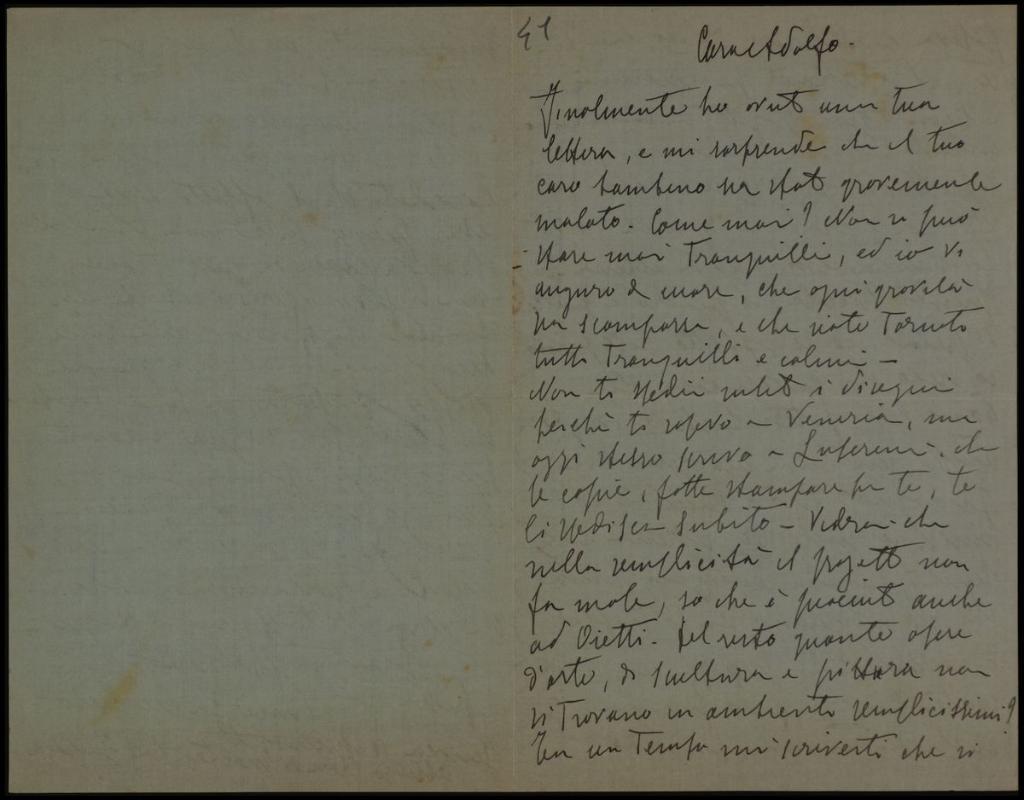 41
Caro Adolfo.
Finalmente ho avuto una tua
lettera, e mi sorprende che il tuo
caro bambino sia stato gravemente
malato. Come mai? Non si può
stare mai tranquilli, ed io vi
auguro di cuore, che ogni gravità
sia scomparsa, e che siate tornati
tutti tranquilli e calmi –
Non ti spedii subito i disegni
perchè ti sapevo a Venezia, ma
oggi stesso scrivo a che
le copie, fatte stampare per te, te
li spedisca subito – Vedrai che
nella semplicità il progetto non
fa male, so che è piaciuto anche
ad Oietti. Del resto quante opere
d'arte, di scultura e pittura non
si trovano in ambienti semplicissimi?
un tempo mi scrivesti che si